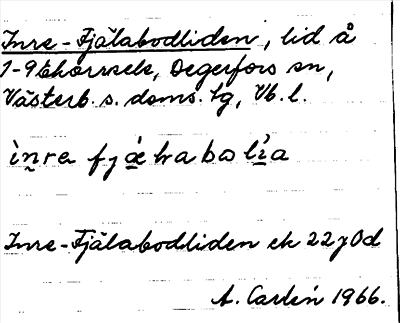 Inre-Fjälabodliden, lid å
1-9 Ekorrsele, Degerfors sn,
Västerb. s. doms. tg, Vb. l.
Inre-Fjälabodliden ek 22 7 0d
A. Carlén 1966.